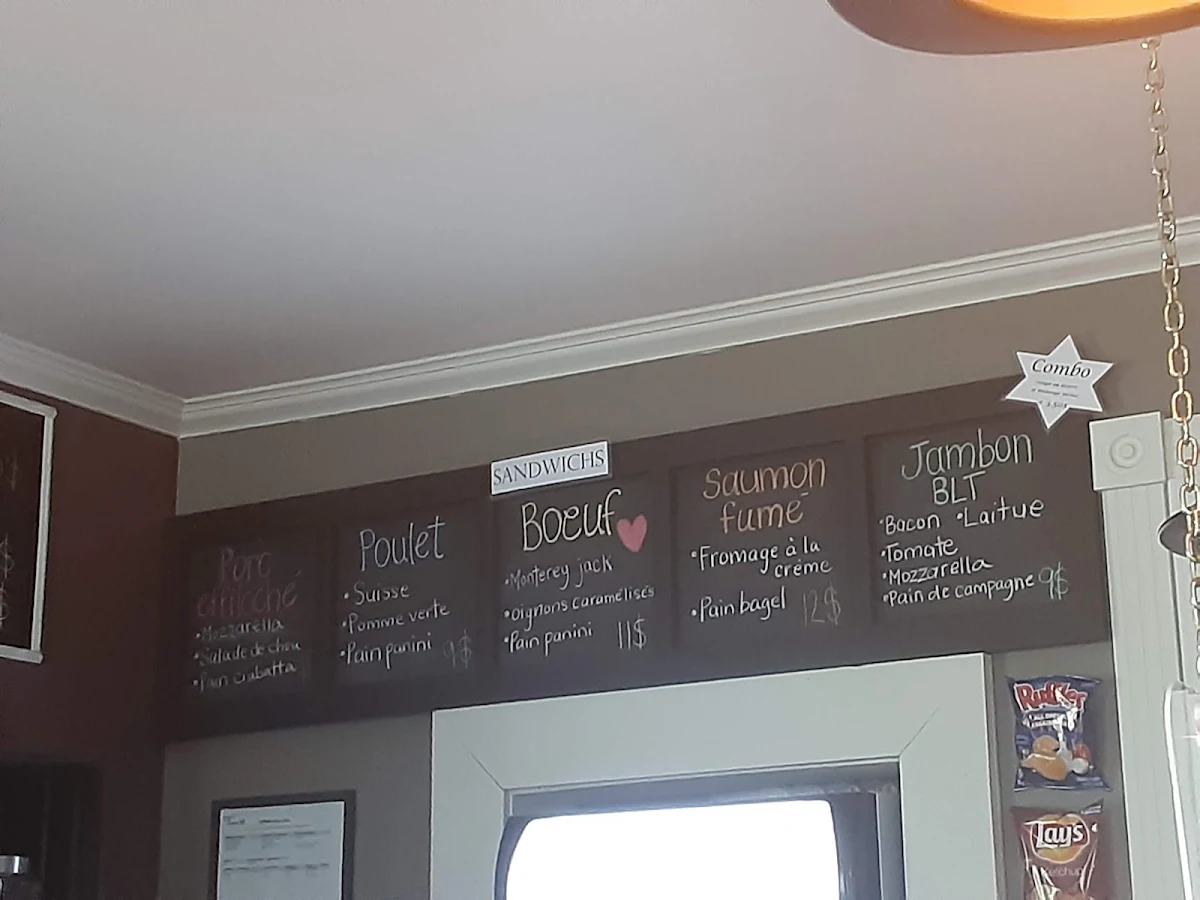 Combo
SANDWICHS
Porc
effiloché
•Mozzarella
•Salade de chou
•Pain ciabatta
Poulet
•Suisse
•Pomme verte
•Pain panini 9$
Boeuf
•Monterey jack
•oignons caramélisés
•Pain panini 11$
Saumon
fumé
•Fromage à la
crème
•Pain bagel 12$
Jambon
BLT
•Bacon •Laitue
•Tomate
•Mozzarella
•Pain de campagne 9$
Ruffles
ALL DRESSED
Lay's
Ketchup